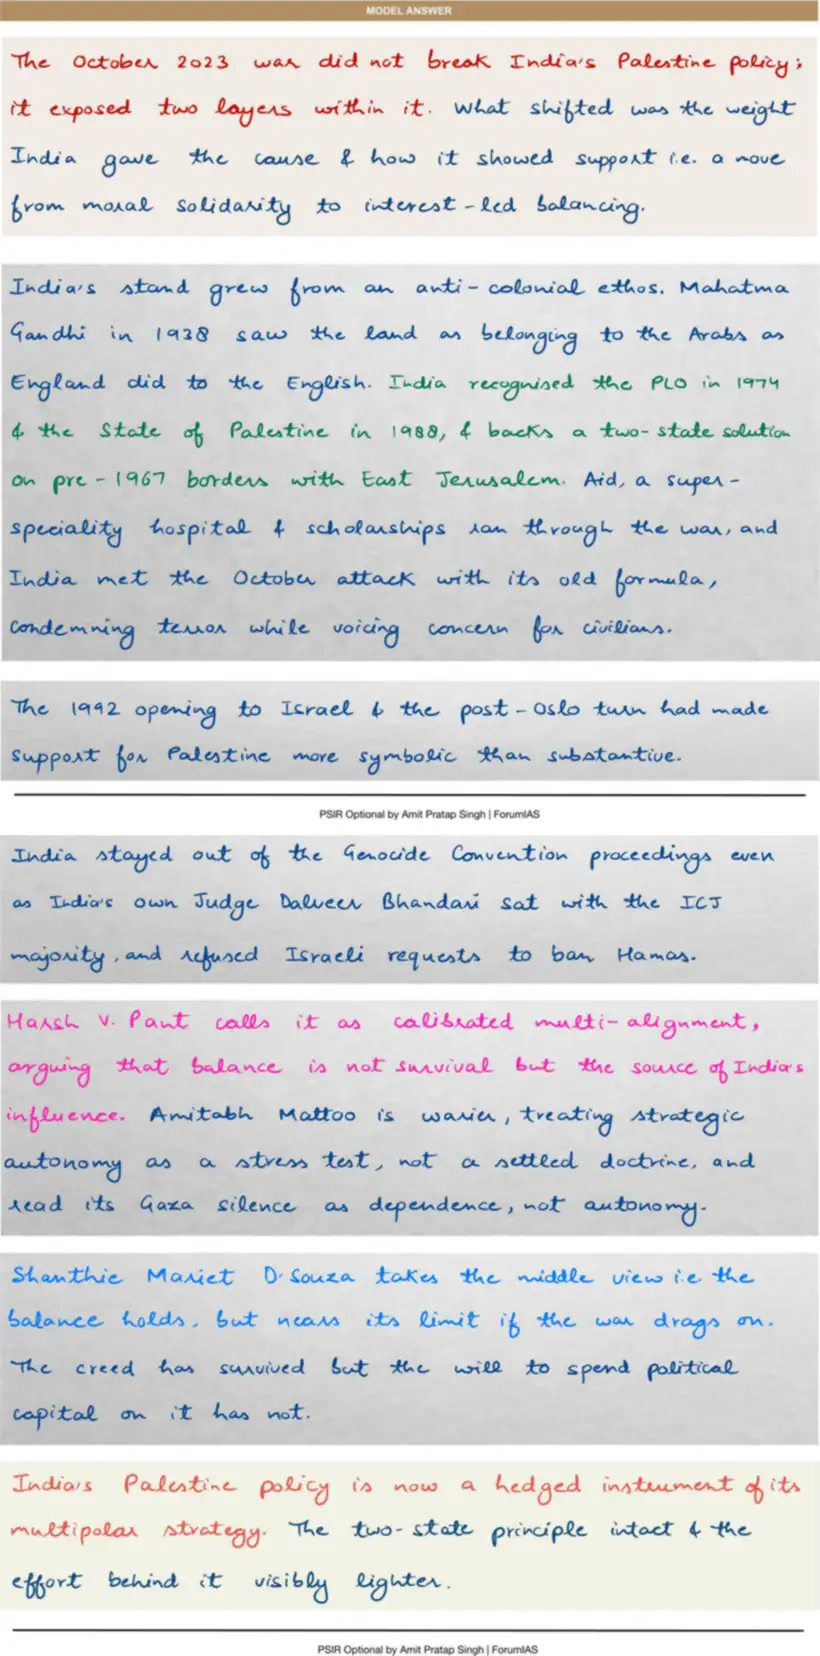 MODEL ANSWER
The October 2023 war did not break India's Palestine policy;
it exposed two layers within it. What shifted was the weight
India gave the cause & how it showed support i.e. a move
from moral solidarity to interest-led balancing.
India's stand grew from an anti-colonial ethos. Mahatma
Gandhi in 1938 saw the land as belonging to the Arabs as
England did to the English. India recognised the PLO in 1974
& the State of Palestine in 1988, & backs a two-state solution
on pre-1967 borders with East Jerusalem. Aid, a super-
speciality hospital & scholarships ran through the war, and
India met the October attack with its old formula,
condemning terror while voicing concern for civilians.
The 1992 opening to Israel & the post-Oslo turn had made
support for Palestine more symbolic than substantive.
PSIR Optional by Amit Pratap Singh | ForumIAS
India stayed out of the Genocide Convention proceedings even
as India's own Judge Dalveer Bhandari sat with the ICJ
majority, and refused Israeli requests to ban Hamas.
Harsh V. Pant calls it as calibrated multi-alignment,
arguing that balance is not survival but the source of India's
influence. Amitabh Mattoo is warier, treating strategic
autonomy as a stress test, not a settled doctrine, and
read its Gaza silence as dependence, not autonomy.
Shanthie Mariet D'Souza takes the middle view i.e. the
balance holds, but nears its limit if the war drags on.
The creed has survived but the will to spend political
capital on it has not.
India's Palestine policy is now a hedged instrument of its
multipolar strategy. The two-state principle intact & the
effort behind it visibly lighter.
PSIR Optional by Amit Pratap Singh | ForumIAS